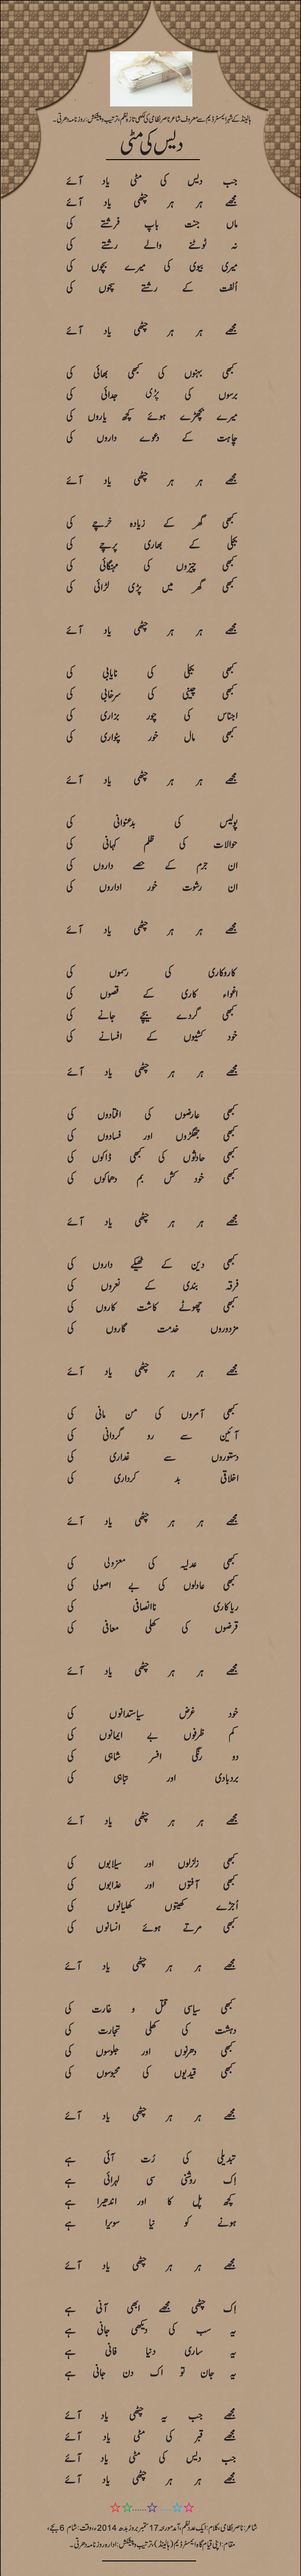 ہالینڈ کے شہر ایمسٹرڈیم سے معروف شاعر ناصر نظامی کی لکھی تازہ نظم، ترتیب و پیشکش: روزنامہ دھرتی۔
دیس کی مٹی
جب دیس کی مٹی یاد آئے
مجھے ہر ہر چٹھی یاد آئے
ماں جنت باپ فرشتے کی
نہ ٹوٹنے والے رشتے کی
میری بیوی کی میرے بچوں کی
اُلفت کے رشتے سچوں کی
مجھے ہر ہر چٹھی یاد آئے
کبھی بہنوں کی کبھی بھائی کی
برسوں کی پڑی جدائی کی
میرے بچھڑے ہوئے کچھ یاروں کی
چاہت کے دعوے داروں کی
مجھے ہر ہر چٹھی یاد آئے
کبھی گھر کے زیادہ خرچے کی
بجلی کے بھاری پرچے کی
کبھی چیزوں کی مہنگائی کی
کبھی گھر میں پڑی لڑائی کی
مجھے ہر ہر چٹھی یاد آئے
کبھی بجلی کی نایابی کی
کبھی چینی کی سرخابی کی
اجناس کی چور بزاری کی
کبھی مال خور پٹواری کی
مجھے ہر ہر چٹھی یاد آئے
پولیس کی بدعنوانی کی
حوالات کی ظلم کہانی کی
ان جرم کے حصے داروں کی
ان رشوت خور اداروں کی
مجھے ہر ہر چٹھی یاد آئے
کاروکاری کی رسموں کی
اغواء کاری کے قصوں کی
کبھی گردے بیچے جانے کی
خود کشیوں کے افسانے کی
مجھے ہر ہر چٹھی یاد آئے
کبھی عارضوں کی افتادوں کی
کبھی جھگڑوں اور فسادوں کی
کبھی حادثوں کی کبھی ڈاکوں کی
کبھی خود کش بم دھماکوں کی
مجھے ہر ہر چٹھی یاد آئے
کبھی دین کے ٹھیکے داروں کی
فرقہ بندی کے نعروں کی
کبھی چھوٹے کاشت کاروں کی
مزدوروں خدمت گاروں کی
مجھے ہر ہر چٹھی یاد آئے
کبھی آمروں کی من مانی کی
آئین سے رو گردانی کی
دستوروں سے غداری کی
اخلاقی بد کرداری کی
مجھے ہر ہر چٹھی یاد آئے
کبھی عدلیہ کی معزولی کی
کبھی عادلوں کی بے اصولی کی
ریاکاری ناانصافی کی
قرضوں کی کھلی معافی کی
مجھے ہر ہر چٹھی یاد آئے
خود غرض سیاستدانوں کی
کم ظرفوں بے ایمانوں کی
دو رنگی افسر شاہی کی
بردبادی اور تباہی کی
مجھے ہر ہر چٹھی یاد آئے
کبھی زلزلوں اور سیلابوں کی
کبھی آفتوں اور عذابوں کی
اُجڑے کھیتوں کھلیانوں کی
کبھی مرتے ہوئے انسانوں کی
مجھے ہر ہر چٹھی یاد آئے
کبھی سیاسی قتل و غارت کی
دہشت کی کھلی تجارت کی
کبھی دھرنوں اور جلوسوں کی
کبھی قیدیوں کی محبوسوں کی
مجھے ہر ہر چٹھی یاد آئے
تبدیلی کی رُت آئی ہے
اِک روشنی سی لہرائی ہے
کچھ پل کا اور اندھیرا ہے
ہونے کو نیا سویرا ہے
مجھے ہر ہر چٹھی یاد آئے
اِک چٹھی مجھے ابھی آنی ہے
یہ سب کی دیکھی جانی ہے
یہ ساری دنیا فانی ہے
یہ جان تو اک دن جانی ہے
مجھے جب یہ چٹھی یاد آئے
مجھے قبر کی مٹی یاد آئے
جب دیس کی مٹی یاد آئے
مجھے ہر ہر چٹھی یاد آئے
شاعر: ناصر نظامی، کلام: ایک عدد نظم، آمد مورخہ 17 ستمبر بروز بدھ 2014ء، وقت: شام 6 بجے،
مقام: اپنی قیام گاہ ایمسٹرڈیم (ہالینڈ)، ترتیب و پیشکش: ادارہ روزنامہ دھرتی۔